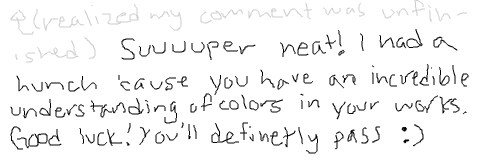 (realized my comment was unfin-
ished) Suuuuper neat! I had a
hunch 'cause you have an incredible
understanding of colors in your works.
Good luck! You'll definetly pass :)